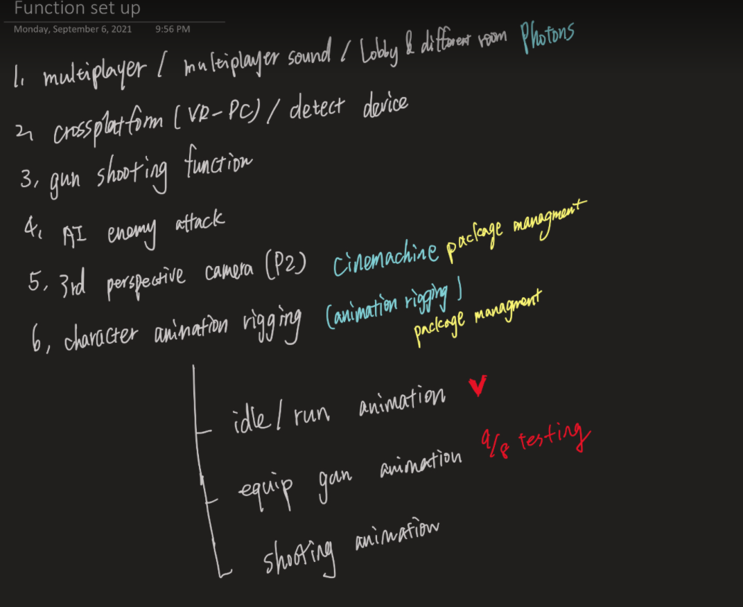 Function set up
Monday, September 6, 2021 9:56 PM
1, multiplayer / multiplayer sound / Lobby & different room Photons
2, crossplatform (VR-PC) / detect device
3, gun shooting function
4, AI enemy attack
5, 3rd perspective camera (P2) cinemachine package managment
6, character animation rigging (animation rigging)
package managment
idle/run animation ✓
equip gun animation 9/8 testing
shooting animation